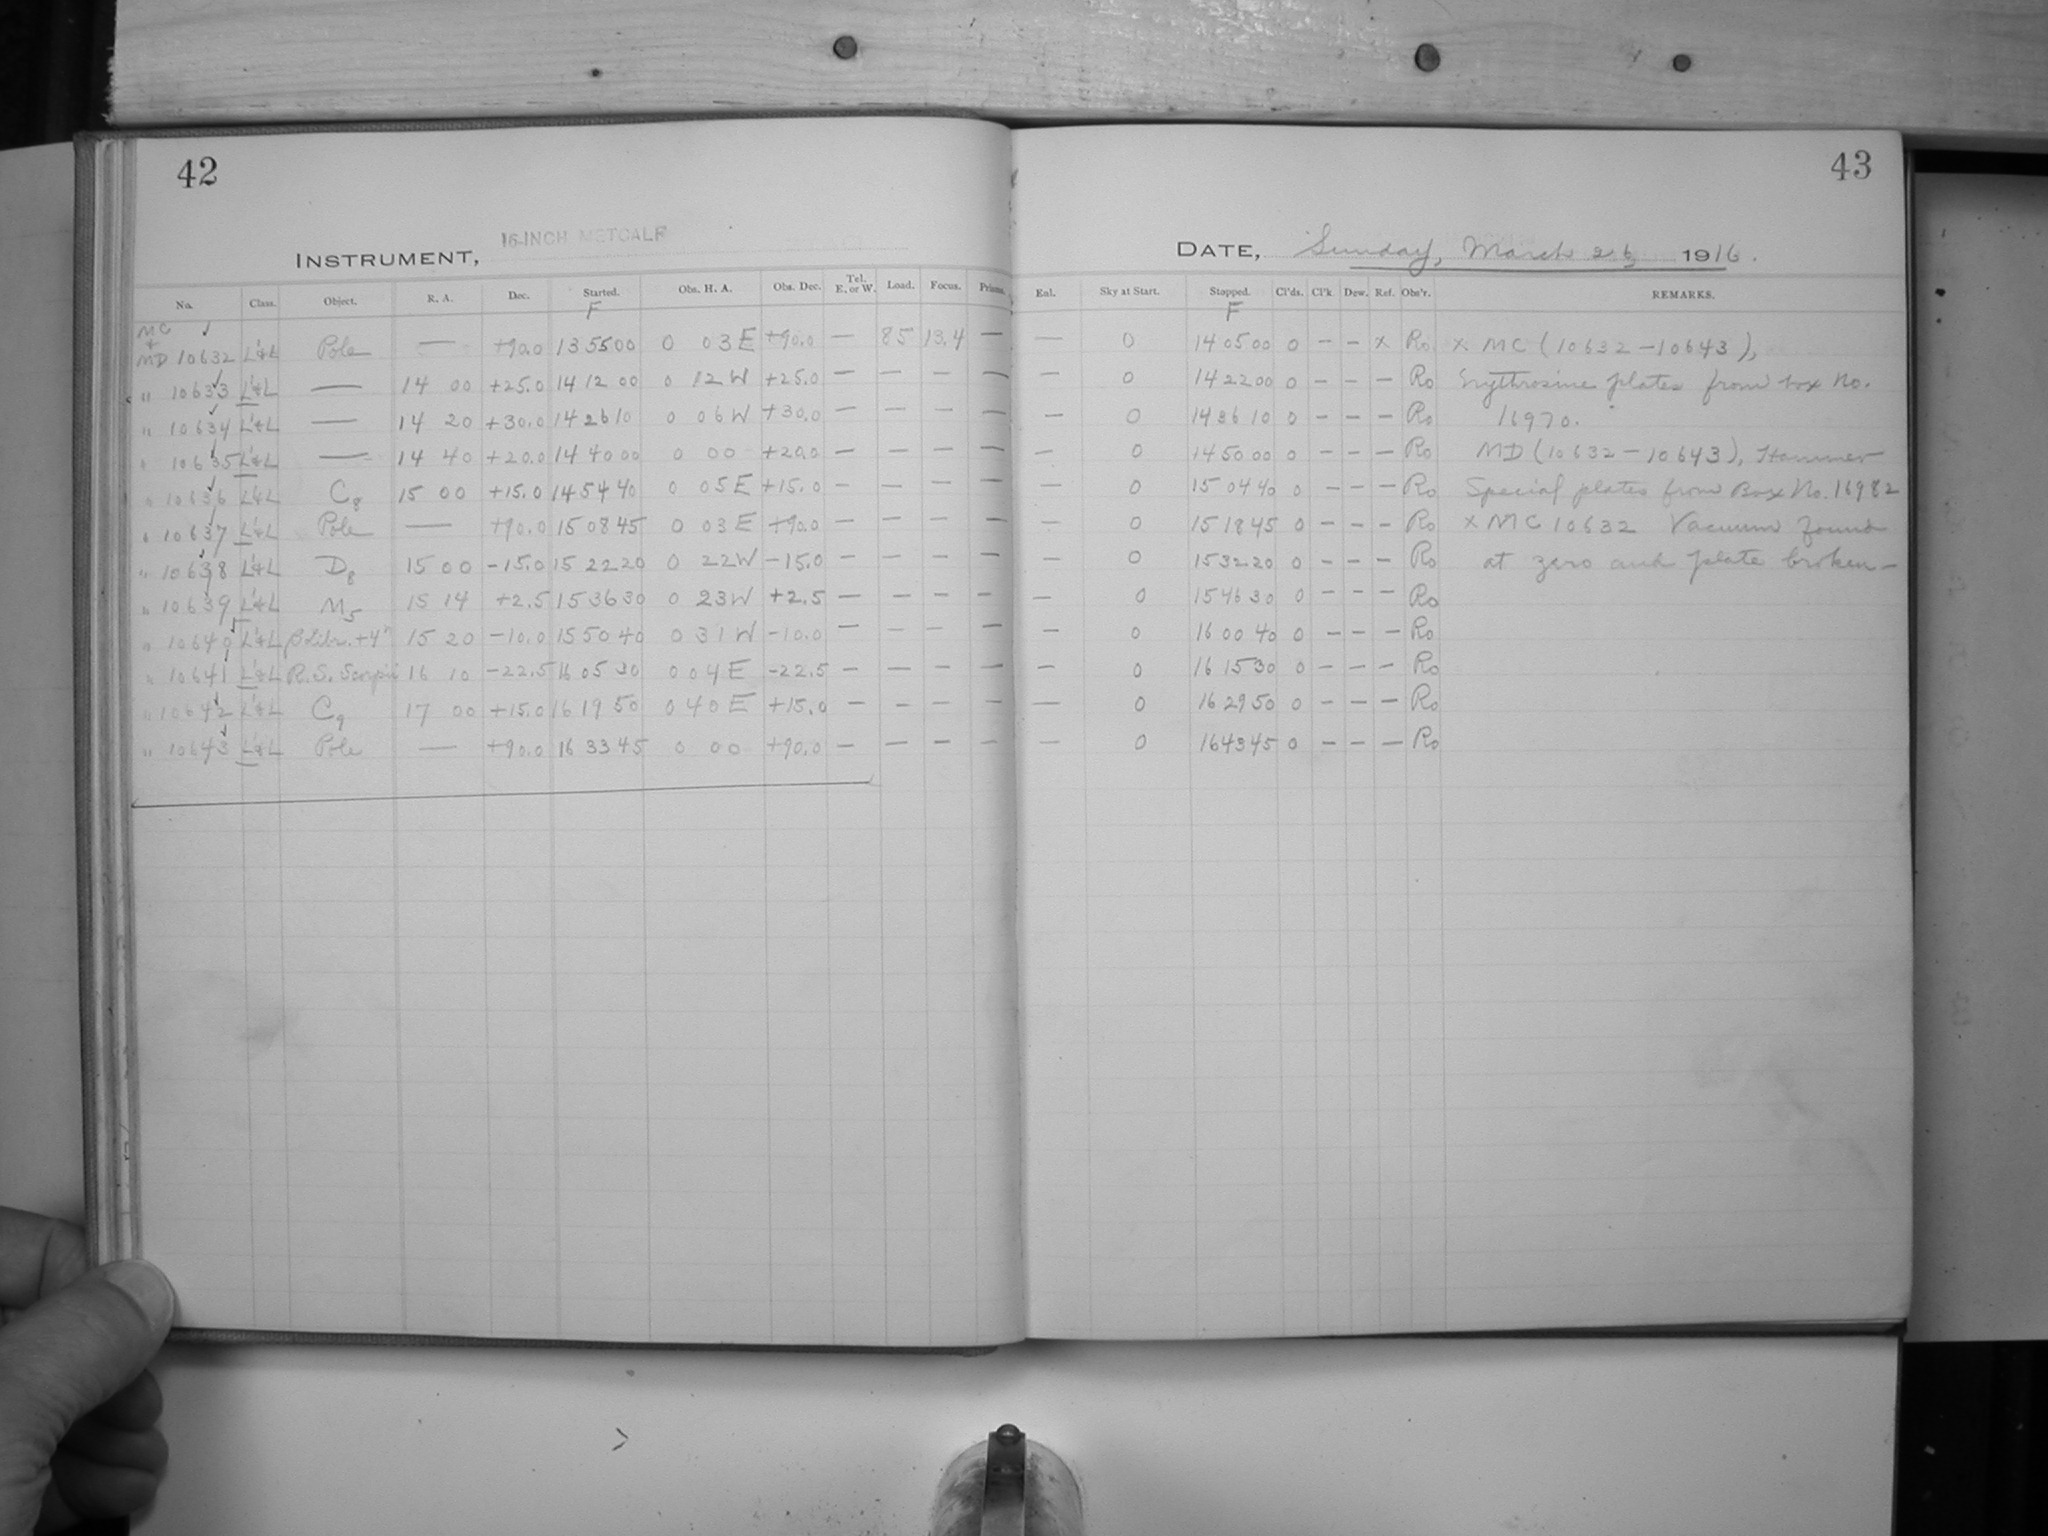 42
43
16-INCH METCALF
INSTRUMENT,
DATE, Sunday, March 26 1916.
No. Class. Object. R. A. Dec. Started. Obs. H. A. Obs. Dec. Tel. E. or W. Load. Focus. Prisms. Enl. Sky at Start. Stopped. Cl'ds. Cl'k Dew. Ref. Obs'r. REMARKS.
F F
MC
& MD 10632 L'&L Pole — +90.0 13 55 00 0 03 E +90.0 — 85 13.4 — — 0 14 05 00 0 – – x Ro x MC (10632–10643),
" 10633 L'&L — 14 00 +25.0 14 12 00 0 12 W +25.0 — — — — — 0 14 22 00 0 – – – Ro Erythrosine plates from box No.
" 10634 L'&L — 14 20 +30.0 14 26 10 0 06 W +30.0 — — — — — 0 14 36 10 0 – – – Ro 16970.
" 10635 L'&L — 14 40 +20.0 14 40 00 0 00 +20.0 — — — — — 0 14 50 00 0 – – – Ro MD (10632–10643), Hammer
" 10636 L'&L C8 15 00 +15.0 14 54 40 0 05 E +15.0 — — — — — 0 15 04 40 0 – – – Ro Special plates from Box No. 16982
" 10637 L'&L Pole — +90.0 15 08 45 0 03 E +90.0 — — — — — 0 15 18 45 0 – – – Ro x MC 10632 Vacuum found
" 10638 L'&L D8 15 00 -15.0 15 22 20 0 22 W -15.0 — — — — — 0 15 32 20 0 – – – Ro at zero and plate broken –
" 10639 L'&L M5 15 14 +2.5 15 36 30 0 23 W +2.5 — — — — — 0 15 46 30 0 – – – Ro
" 10640 L'&L β Libr. +4m 15 20 -10.0 15 50 40 0 31 W -10.0 — — — — — 0 16 00 40 0 – – – Ro
" 10641 L'&L R.S. Scorpii 16 10 -22.5 16 05 30 0 04 E -22.5 — — — — — 0 16 15 30 0 – – – Ro
" 10642 L'&L C9 17 00 +15.0 16 19 50 0 40 E +15.0 — — — — — 0 16 29 50 0 – – – Ro
" 10643 L'&L Pole — +90.0 16 33 45 0 00 +90.0 — — — — — 0 16 43 45 0 – – – Ro